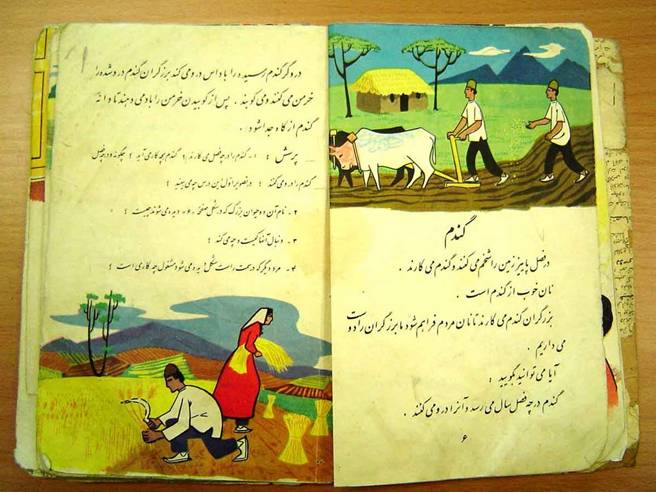 گندم
در فصل پاییز زمین را شخم می کنند و گندم می کارند .
نان خوب از گندم است .
بزرگران گندم می کارند تا نان مردم فراهم شود ما برزگران را دوست
می داریم .
آیا می توانید بگویید :
گندم در چه فصل سال می رسد و آنرا درو می کنند .
۶
دروگر گندم رسیده را با داس درو می کند برزگران گندم درو شده را
خرمن می کنند و می کوبند . پس از کوبیدن خرمن را باد می دهند تا دانه
گندم از کاه جدا شود .
پرسش : ۱ - گندم را در چه فصل می کارند ؟ گندم بچه کار می آید ؟ چگونه و در چه فصل
گندم را درو می کنند ؟ در تصویر اول این درس چه می بینید ؟
۲ - نام آن دو حیوان بزرگ که در شکل صفحه ۶ دیده می شوند چیست ؟
۳ - دنبال آنها کیست و چه می کند ؟
۴ - مرد دیگر که در سمت راست شکل دیده می شود مشغول چه کاری است ؟